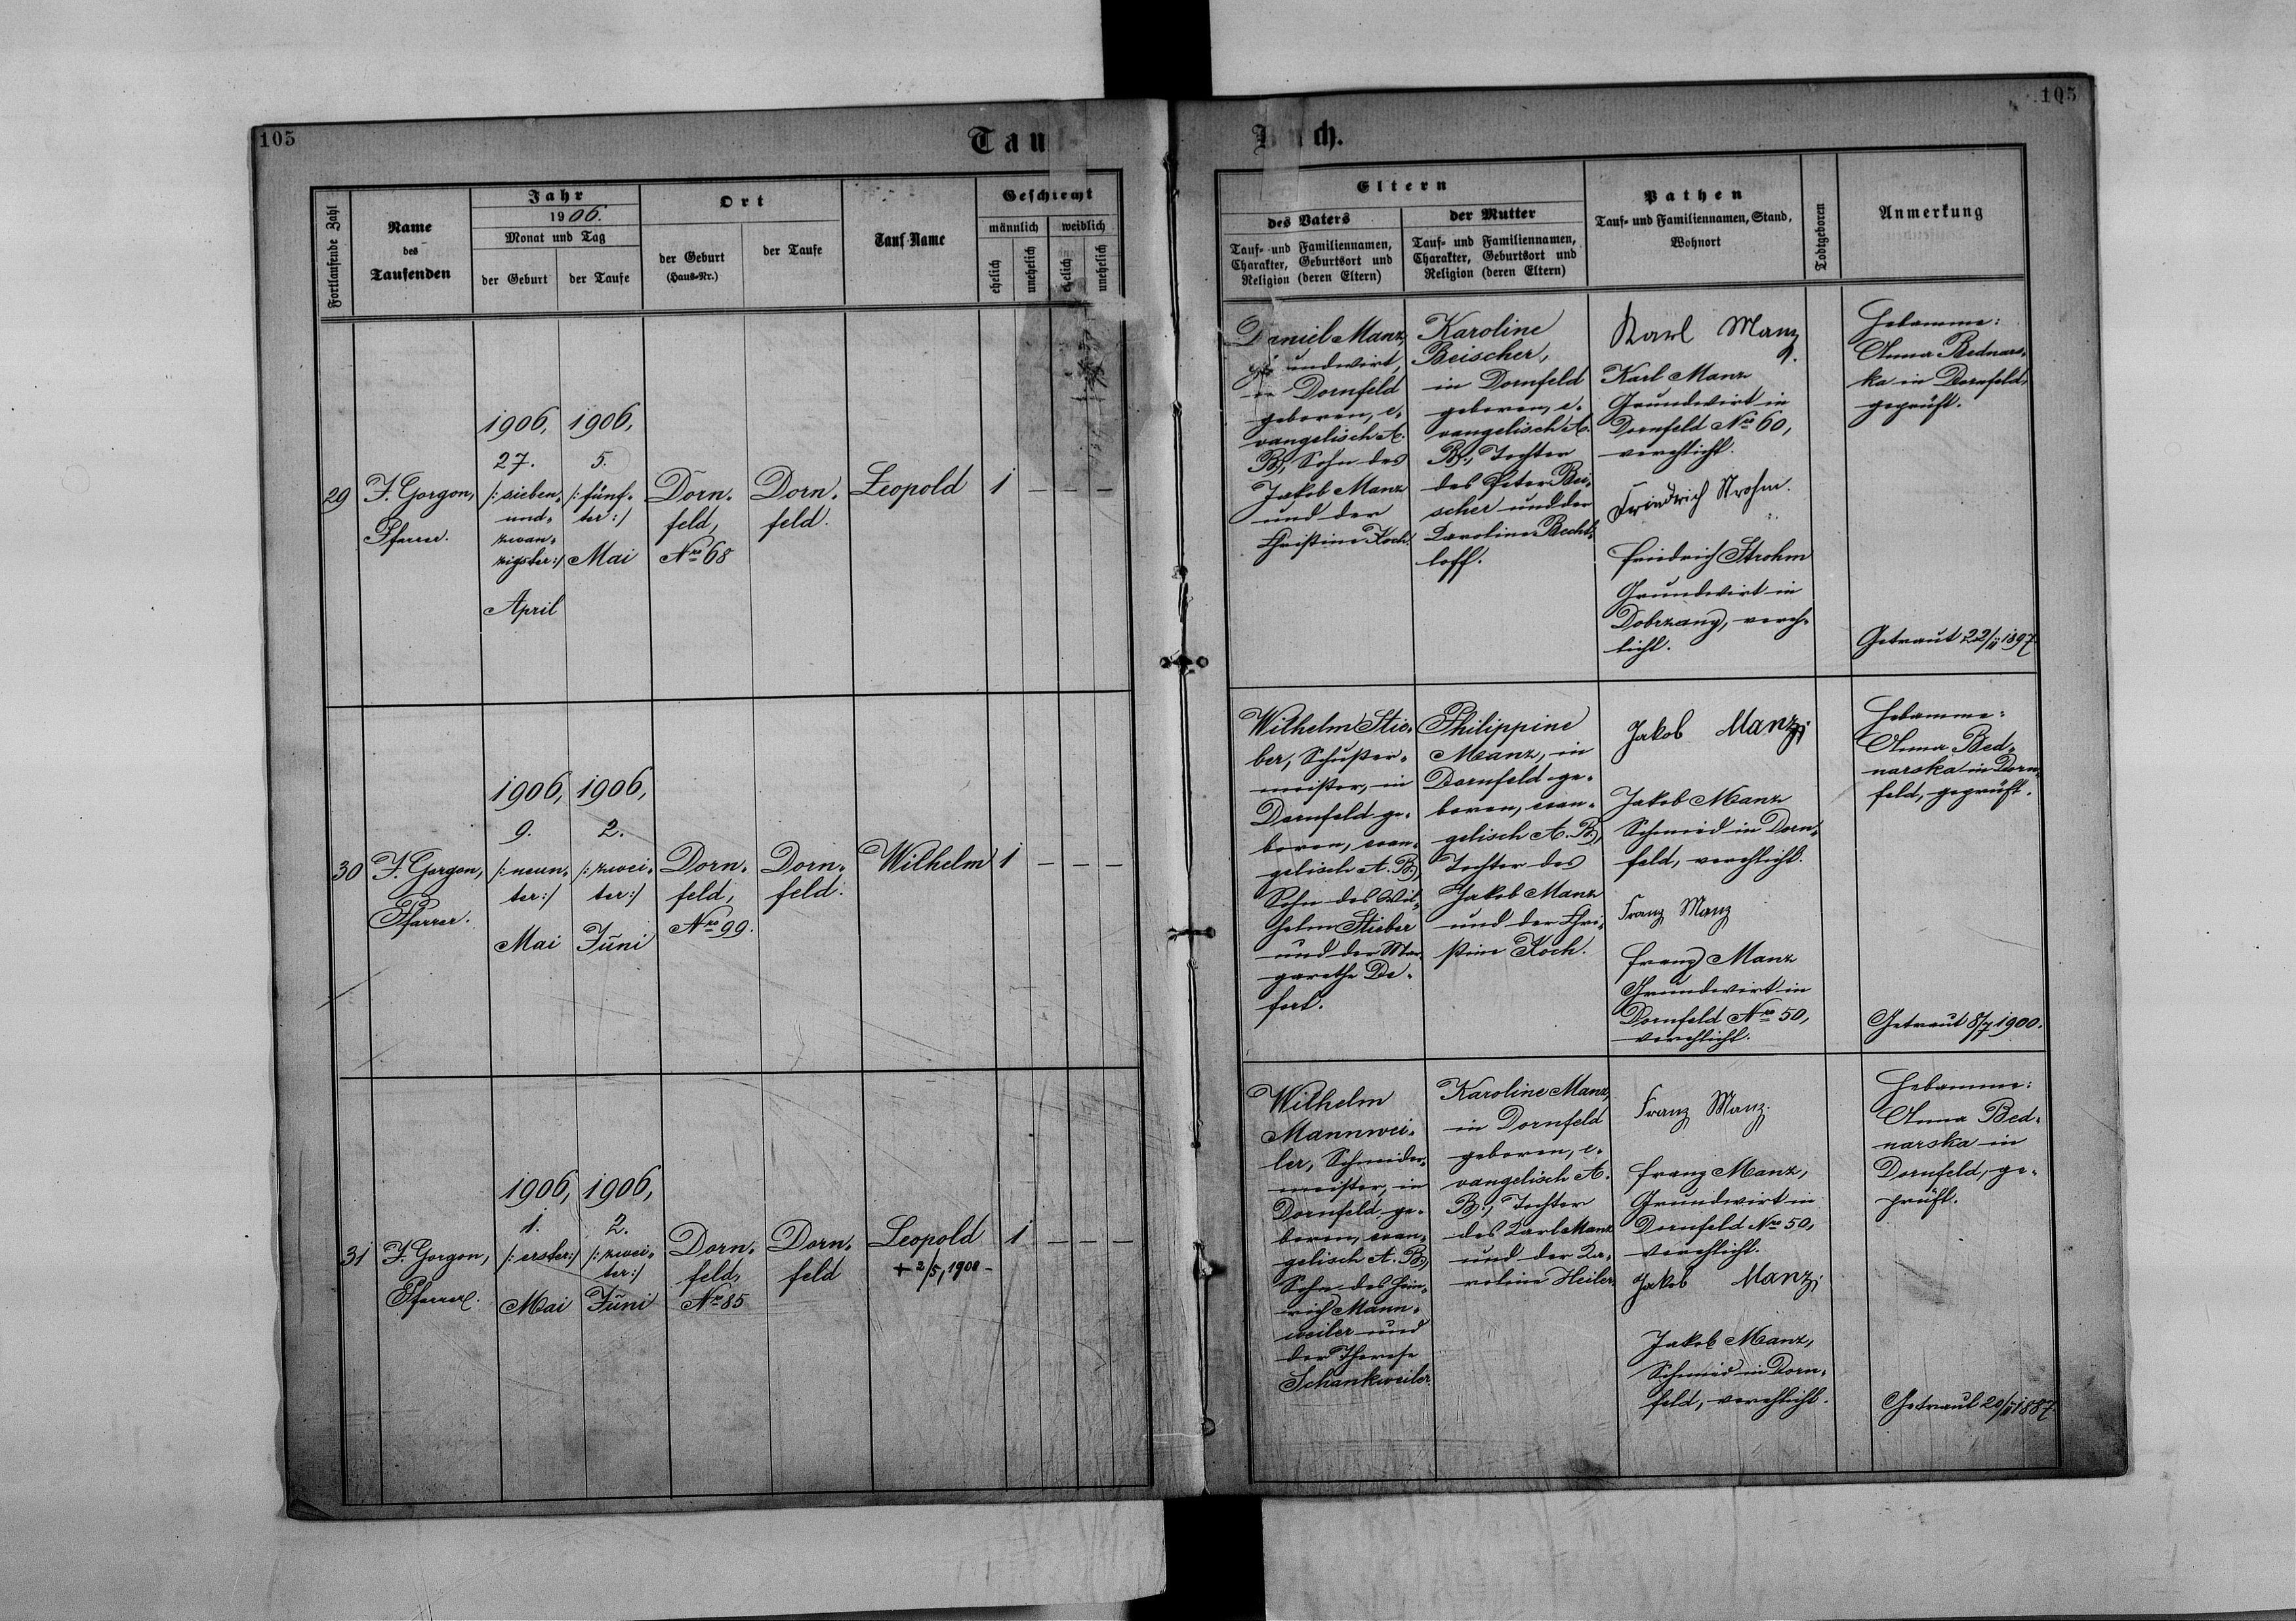 105
Tauf-
Fortlaufende Zahl
Name
des
Taufenden
Jahr
1906.
Monat und Tag
der Geburt
der Taufe
Ort
der Geburt
(Haus-Nr.)
der Taufe
Tauf-Name
Geschlecht
männlich
weiblich
ehelich
unehelich
ehelich
unehelich
29
F. Gorgon,
Pfarrer.
1906,
27.
/: sieben-
und-
zwan-
zigster:/
April
1906,
5.
/: fünf-
ter:/
Mai
Dorn-
feld,
Nro 68
Dorn-
feld.
Leopold
1
—
—
—
30
F. Gorgon,
Pfarrer.
1906,
9.
/: neun-
ter:/
Mai
1906,
2.
/: zwei-
ter:/
Juni
Dorn-
feld,
Nro 99.
Dorn-
feld.
Wilhelm
1
—
—
—
31
F. Gorgon,
Pfarrer.
1906,
1.
/: erster:/
Mai
1906,
2.
/: zwei-
ter:/
Juni
Dorn-
feld,
Nro 85
Dorn-
feld
Leopold
+ 2/5, 1908 -
1
—
—
—
105
Buch.
Eltern
des Vaters
Tauf- und Familiennamen,
Charakter, Geburtsort und
Religion (deren Eltern)
der Mutter
Tauf- und Familiennamen,
Charakter, Geburtsort und
Religion (deren Eltern)
Pathen
Tauf- und Familiennamen, Stand,
Wohnort
Todtgeboren
Anmerkung
Daniel Manz,
Grundwirt,
in Dornfeld
geboren, e-
vangelisch A.
B., Sohn des
Jakob Manz
und der
Christine Koch.
Karoline
Beischer,
in Dornfeld
geboren, e-
vangelisch A.
B., Tochter
des Peter Bei-
scher und der
Karoline Becht-
loff.
Karl Manz
Karl Manz
Grundwirt in
Dornfeld Nro 60,
verehlicht.
Friedrich Strohm.
Friedrich Strohm
Grundwirt in
Dobrzany, vereh-
licht.
Hebamme:
Anna Bednars-
ka in Dornfeld,
geprüft.
Getraut 22/ii 1897
Wilhelm Stie-
ber, Schuster-
meister, in
Dornfeld ge-
boren, evan-
gelisch A. B.,
Sohn des Wil-
helm Stieber
und der Mar-
garethe De-
fort.
Philippine
Manz, in
Dornfeld ge-
boren, evan-
gelisch A. B.,
Tochter des
Jakob Manz
und der Chri-
stine Koch.
Jakob Manz
Jakob Manz
Schmied in Dorn-
feld, verehlicht.
Franz Manz
Franz Manz
Grundwirt in
Dornfeld Nro 50,
verehlicht.
Hebamme:
Anna Bed-
narska in Dorn-
feld, geprüft.
Getraut 8/7 1900.
Wilhelm
Mannwei-
ler, Schneider-
meister, in
Dornfeld ge-
boren, evan-
gelisch A. B.,
Sohn des Hein-
rich Mann-
weiler und
der Therese
Schankweiler.
Karoline Manz,
in Dornfeld
geboren, e-
vangelisch A.
B., Tochter
des Karl Manz
und der Ka-
roline Heiler.
Franz Manz.
Franz Manz,
Grundwirt in
Dornfeld Nro 50,
verehlicht.
Jakob Manz
Jakob Manz,
Schmied in Dorn-
feld, verehlicht.
Hebamme:
Anna Bed-
narska in
Dornfeld, ge-
prüft.
Getraut 20/ii 1887